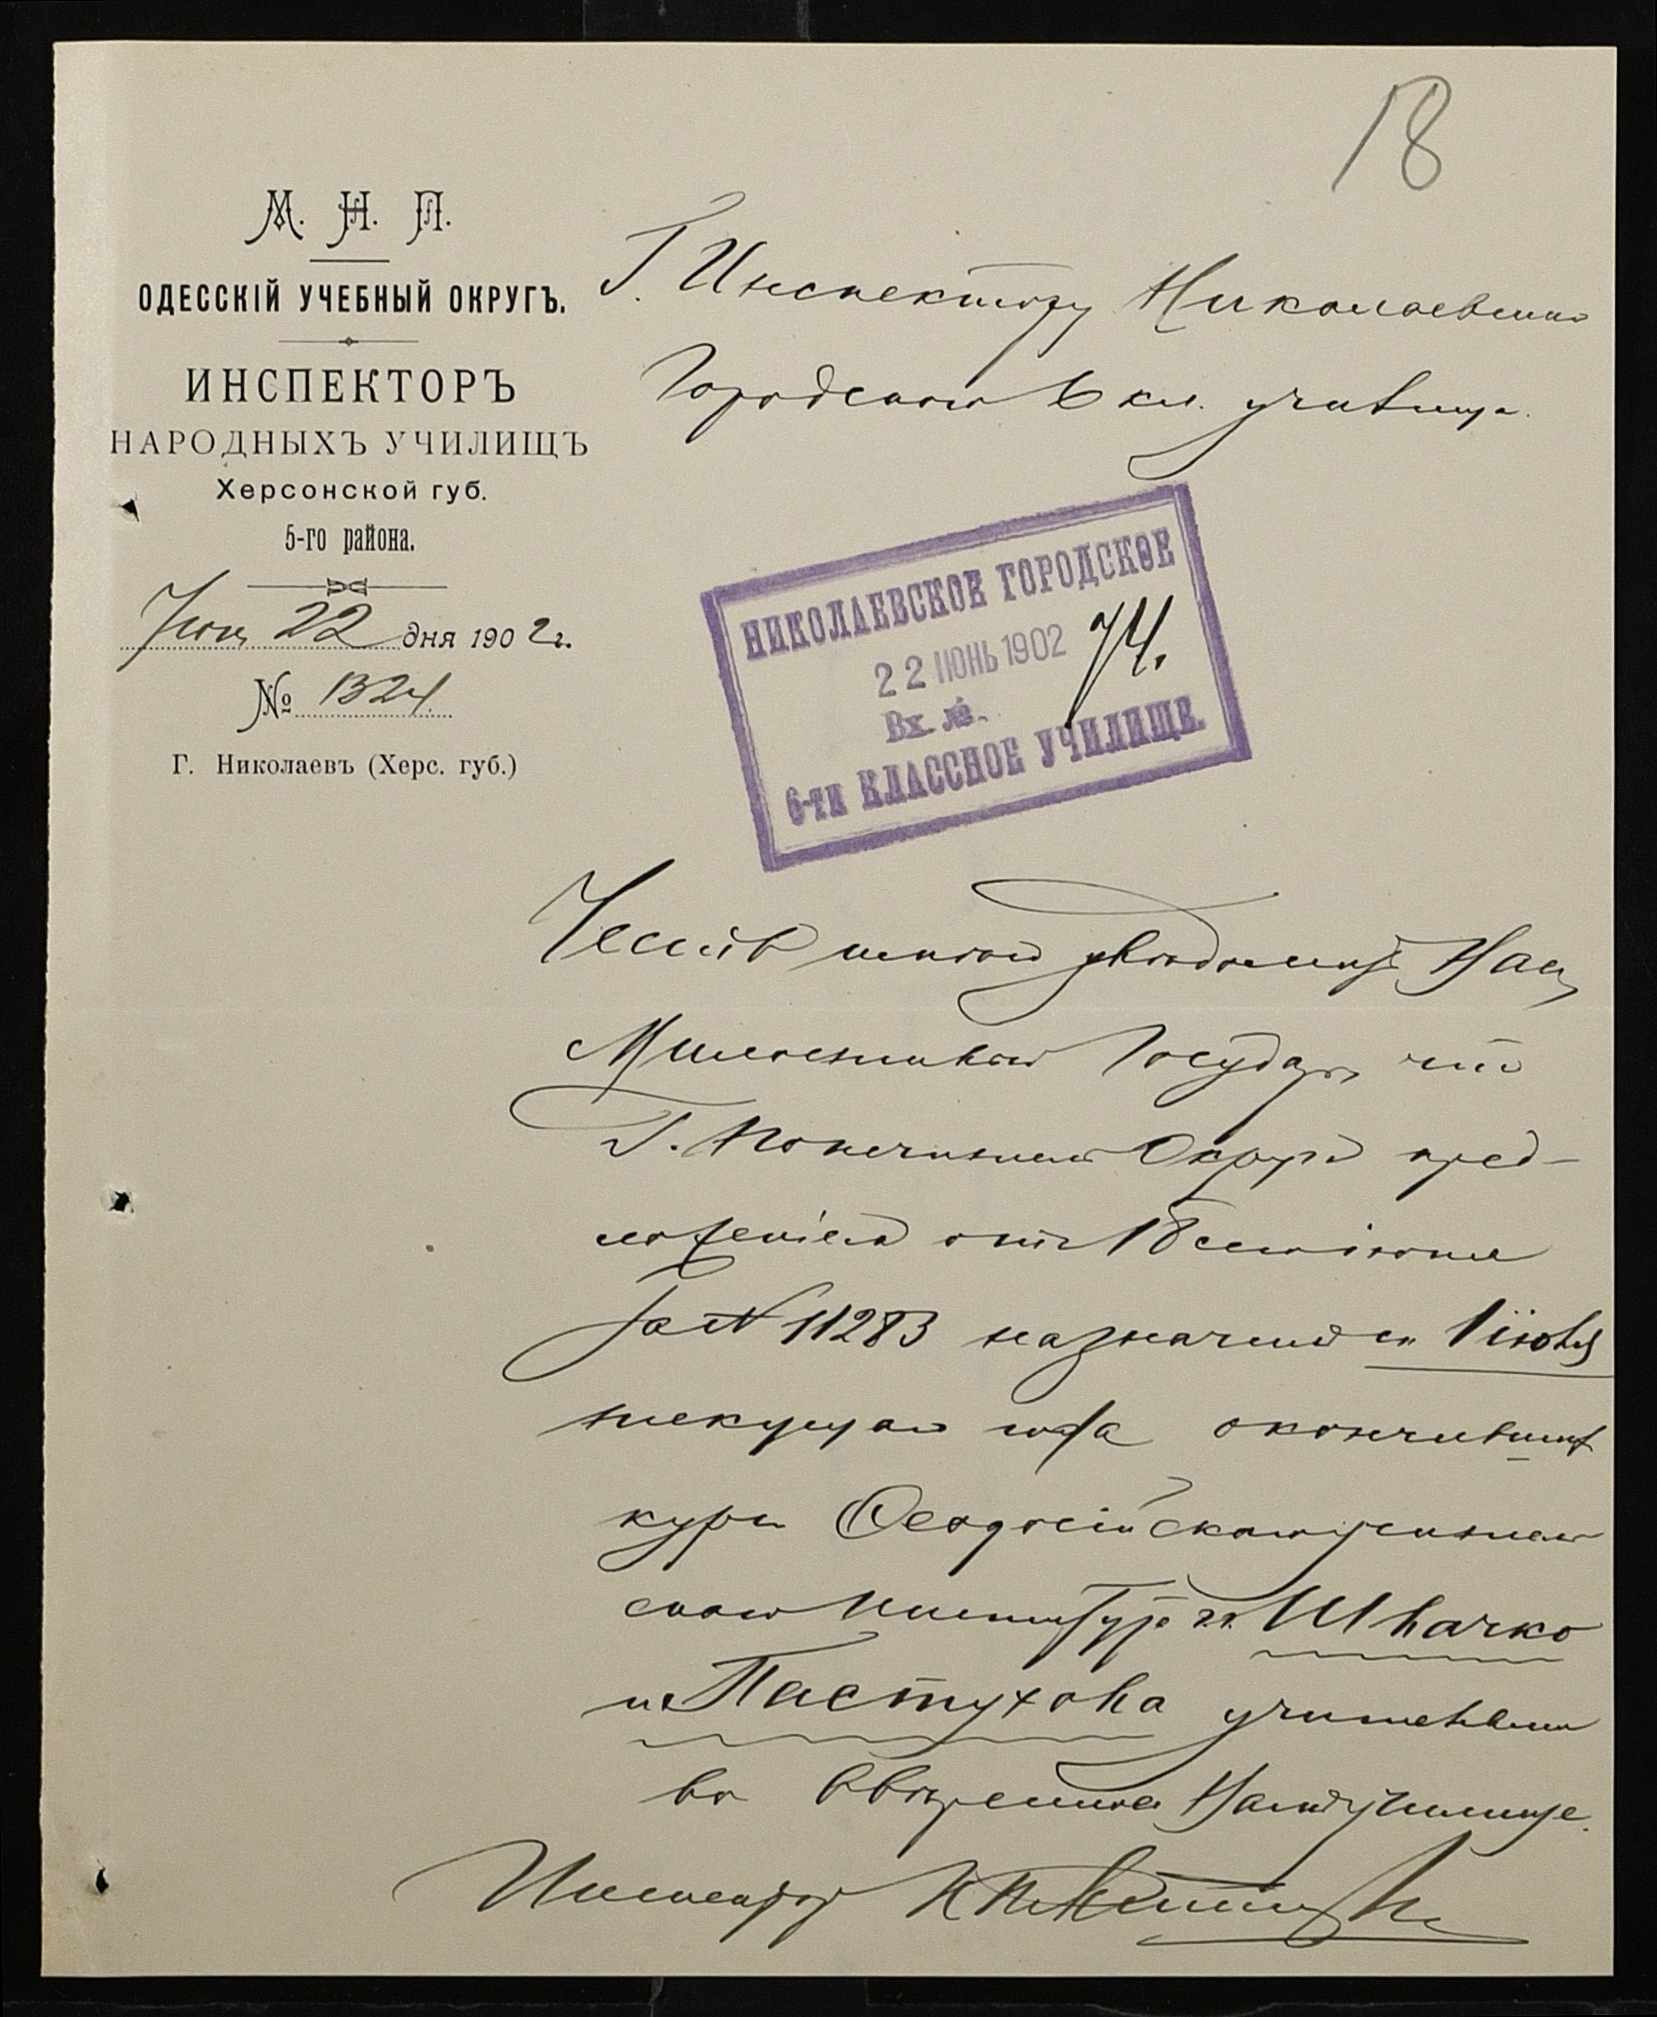 18
М. Н. П.
ОДЕССКІЙ УЧЕБНЫЙ ОКРУГЪ.
ИНСПЕКТОРЪ
НАРОДНЫХЪ УЧИЛИЩЪ
Херсонской губ.
5-го района.
Іюня 22 дня 1902 г.
№ 1324
Г. Николаевъ (Херс. губ.)
Г. Инспектору Николаевскаго
Городского 6 кл. училища.
НИКОЛАЕВСКОЕ ГОРОДСКОЕ
22 ІЮНЬ 1902 74.
Вх. №.
6-ти КЛАССНОЕ УЧИЛИЩЕ.
Честь имѣю увѣдомить Васъ
Милостивый Государь, что
Г. Попечитель Округа пред-
ложеніемъ отъ 18 сего іюня
за № 11283 назначилъ съ 1 іюля
текущаго года окончившихъ
курсъ Ѳеодосійскаго учитель
скаго Института г.г. Швачко
и Пастухова учителями
во ввѣренное Вамъ училище.
Инспекторъ